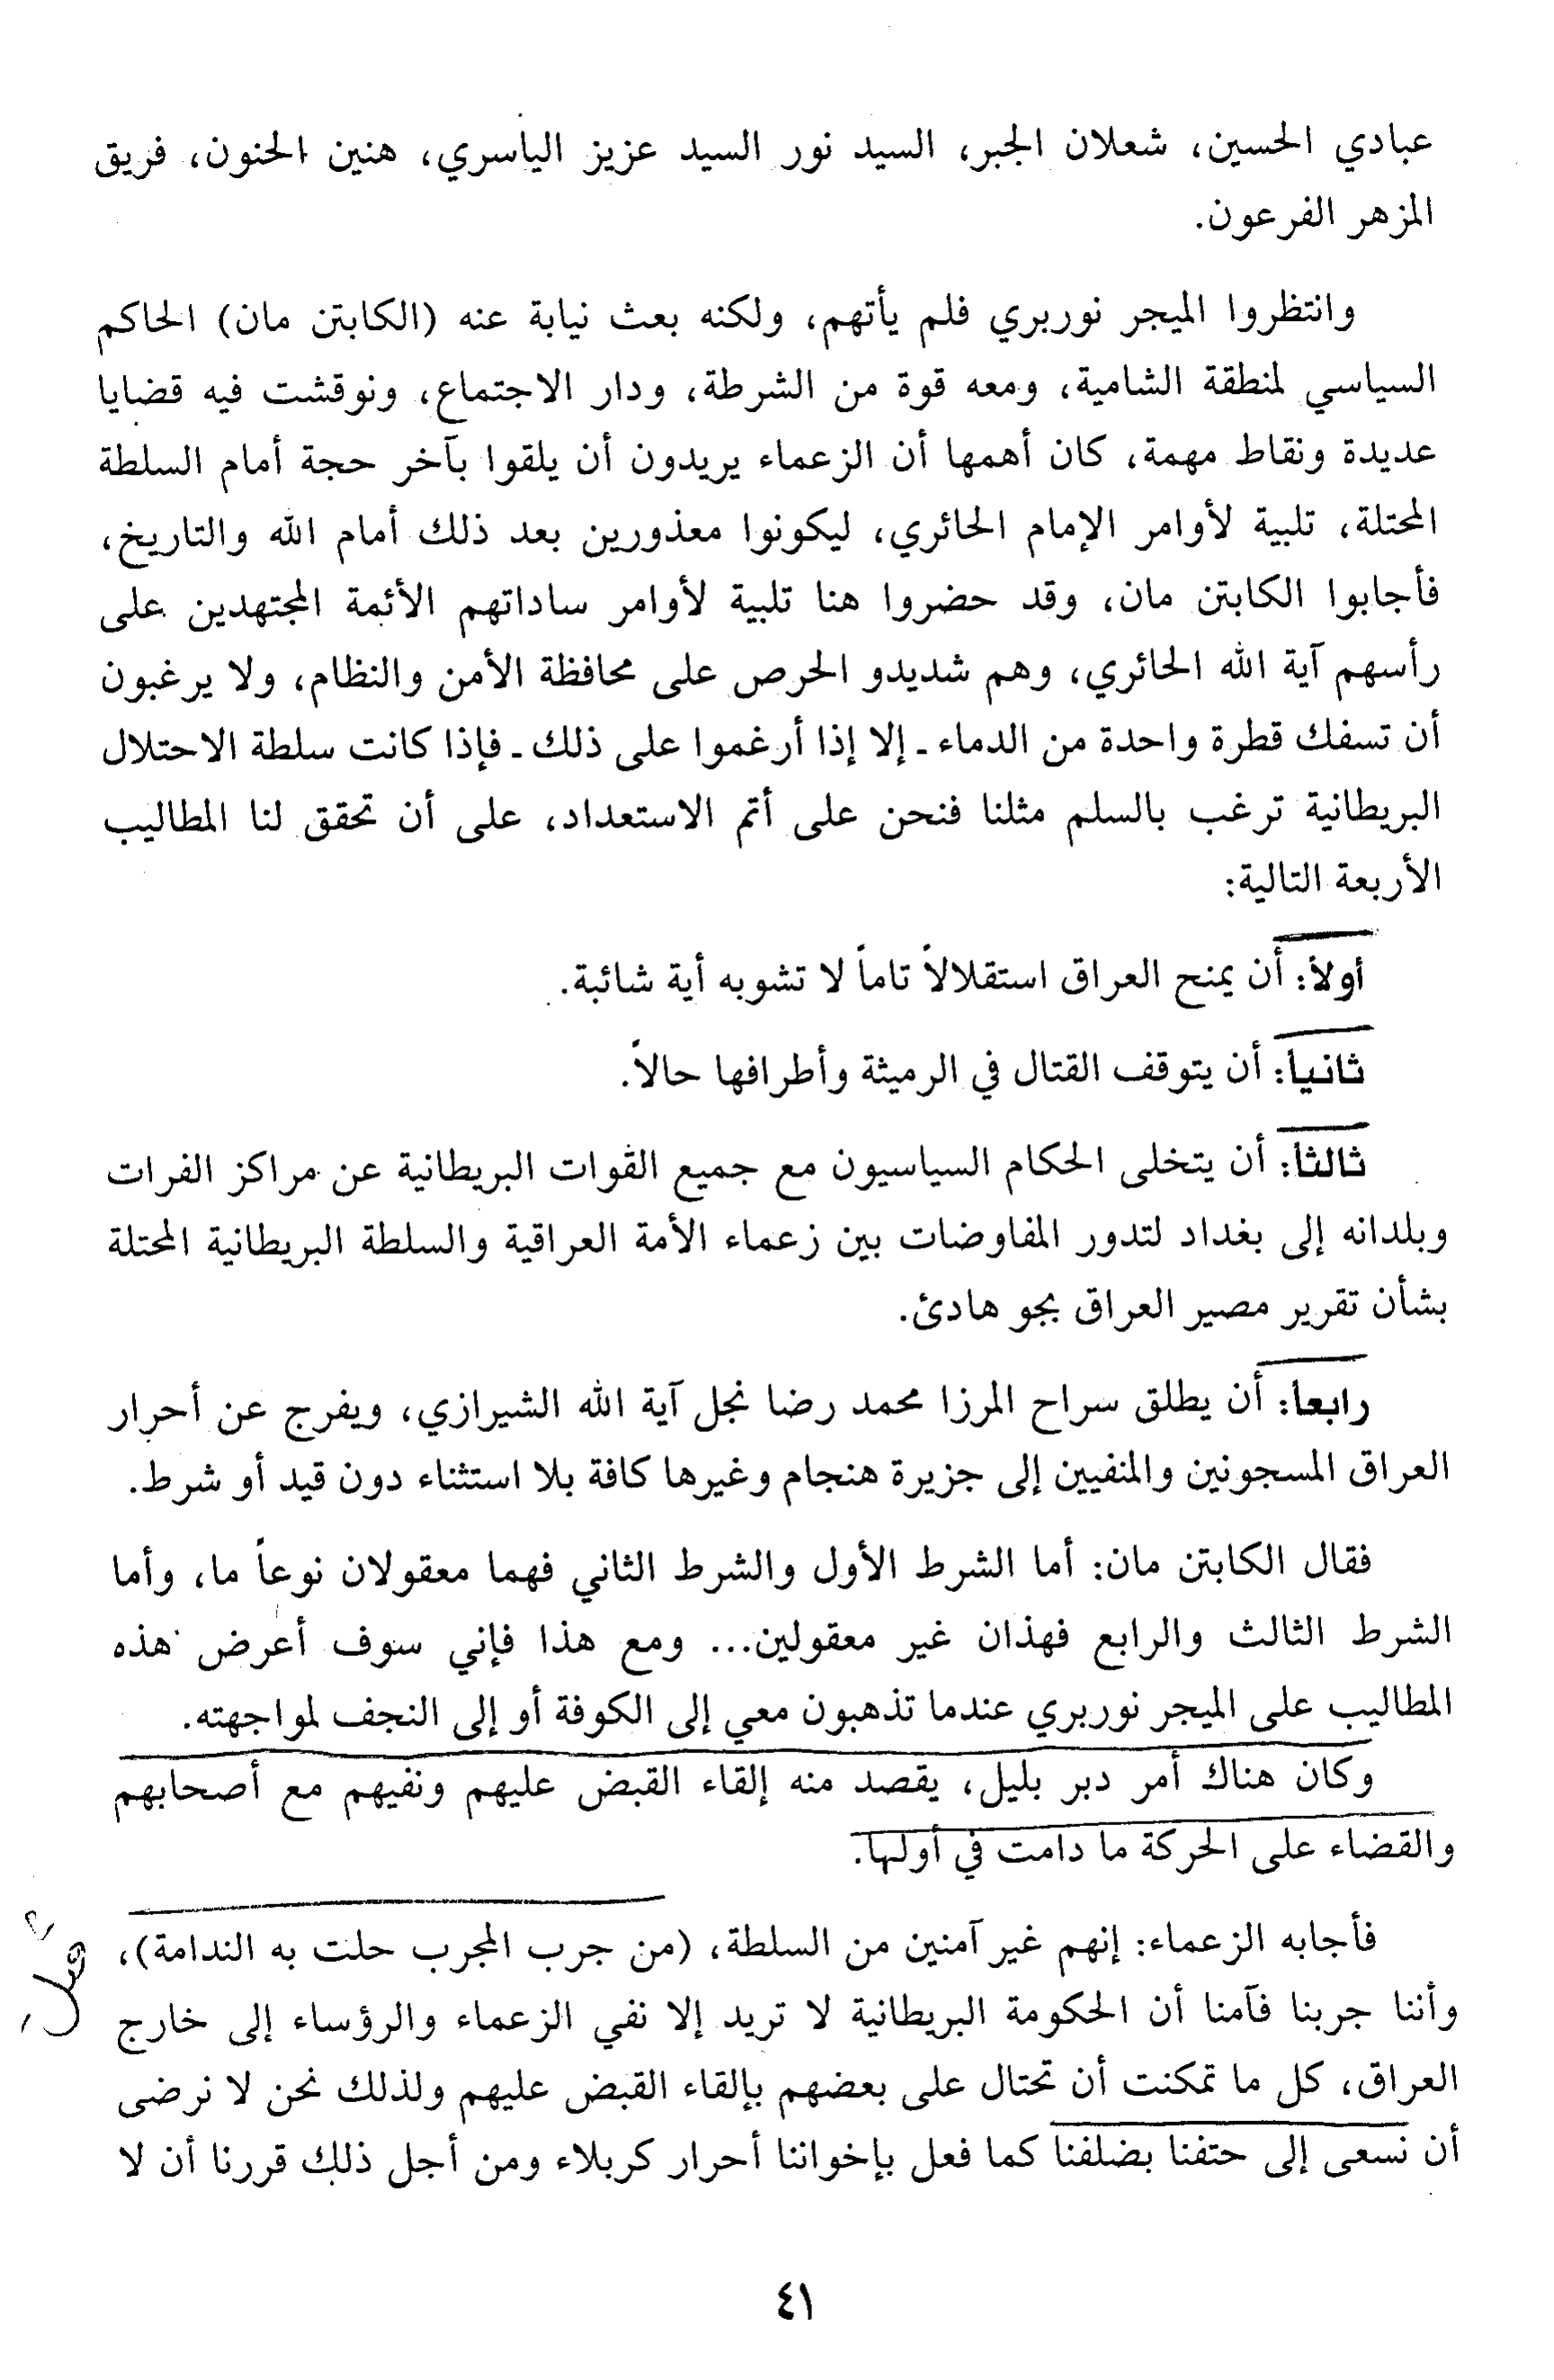 عبادي الحسين، شعلان الجبر، السيد نور السيد عزيز الياسري، هنين الحنون، فريق
المزهر الفرعون.
وانتظروا الميجر نوربري فلم يأتهم، ولكنه بعث نيابة عنه (الكابتن مان) الحاكم
السياسي لمنطقة الشامية، ومعه قوة من الشرطة، ودار الاجتماع، ونوقشت فيه قضايا
عديدة ونقاط مهمة، كان أهمها أن الزعماء يريدون أن يلقوا بآخر حجة أمام السلطة
المحتلة، تلبية لأوامر الإمام الحائري، ليكونوا معذورين بعد ذلك أمام الله والتاريخ،
فأجابوا الكابتن مان، وقد حضروا هنا تلبية لأوامر ساداتهم الأئمة المجتهدين على
رأسهم آية الله الحائري، وهم شديدو الحرص على محافظة الأمن والنظام، ولا يرغبون
أن تسفك قطرة واحدة من الدماء - إلا إذا أرغموا على ذلك - فإذا كانت سلطة الاحتلال
البريطانية ترغب بالسلم مثلنا فنحن على أتم الاستعداد، على أن تحقق لنا المطاليب
الأربعة التالية:
أولاً: أن يمنح العراق استقلالاً تاماً لا تشوبه أية شائبة.
ثانياً: أن يتوقف القتال في الرميثة وأطرافها حالاً.
ثالثاً: أن يتخلى الحكام السياسيون مع جميع القوات البريطانية عن مراكز الفرات
وبلدانه إلى بغداد لتدور المفاوضات بين زعماء الأمة العراقية والسلطة البريطانية المحتلة
بشأن تقرير مصير العراق بجو هادئ.
رابعاً: أن يطلق سراح المرزا محمد رضا نجل آية الله الشيرازي، ويفرج عن أحرار
العراق المسجونين والمنفيين إلى جزيرة هنجام وغيرها كافة بلا استثناء دون قيد أو شرط.
فقال الكابتن مان: أما الشرط الأول والشرط الثاني فهما معقولان نوعاً ما، وأما
الشرط الثالث والرابع فهذان غير معقولين... ومع هذا فإني سوف أعرض هذه
المطاليب على الميجر نوربري عندما تذهبون معي إلى الكوفة أو إلى النجف لمواجهته.
وكان هناك أمر دبر بليل، يقصد منه إلقاء القبض عليهم ونفيهم مع أصحابهم
والقضاء على الحركة ما دامت في أولها.
فأجابه الزعماء: إنهم غير آمنين من السلطة، (من جرب المجرب حلت به الندامة)،
وأننا جربنا فآمنا أن الحكومة البريطانية لا تريد إلا نفي الزعماء والرؤساء إلى خارج
العراق، كل ما تمكنت أن تحتال على بعضهم بإلقاء القبض عليهم ولذلك نحن لا نرضى
أن نسعى إلى حتفنا بضلفنا كما فعل بإخواننا أحرار كربلاء ومن أجل ذلك قررنا أن لا
٤١